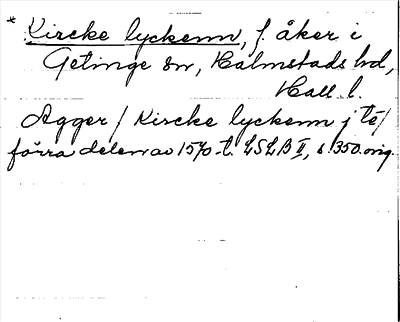 * Kircke lyckenn, f. åker i
Getinge sn, Halmstads hd,
Hall. l.
Agger / Kircke lyckenn j te /
förra delen av 1570-t. LSLB II, s. 350. orig.